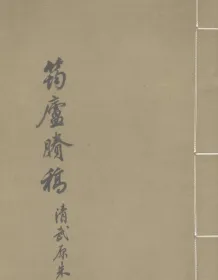 筠廬賸稿
清武原朱